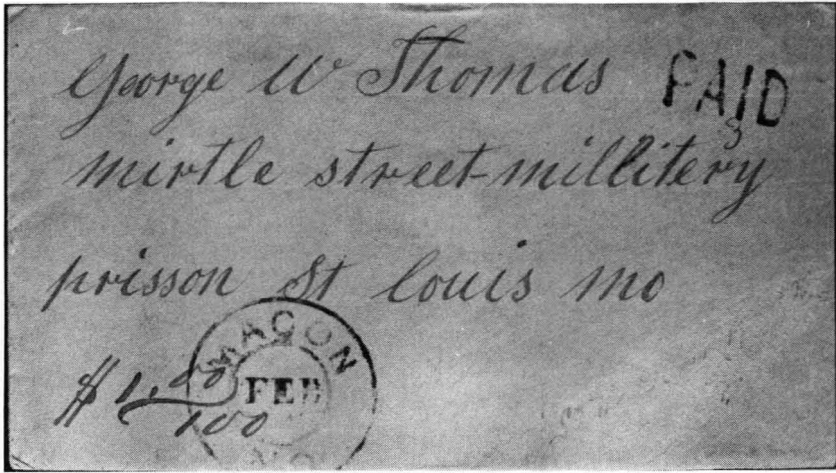 George W Thomas
PAID
3
mirtle street millitery
prisson St Louis mo
$1,00/100
MACON
FEB
MO